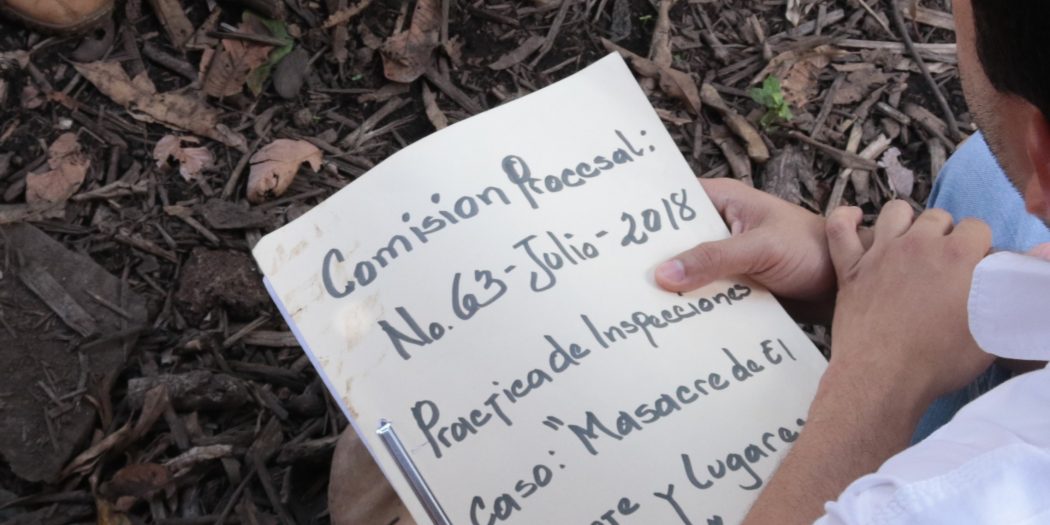 Comision Procesal:
No. 63-Julio-2018
Practica de Inspecciones
Caso: "Masacre de El
y Lugare